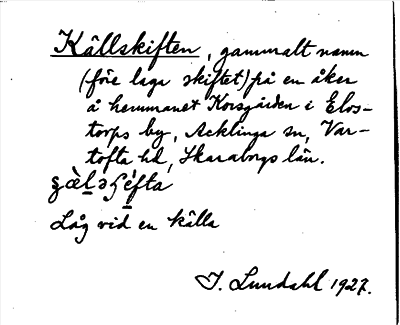 Källskiften, gammalt namn
(före laga skiftet) på en åker
å hemmanet Korsgården i Elos-
torps by, Acklinga sn, Var-
tofta hd, Skaraborgs län.
Låg vid en källa
I. Lundahl 1927.